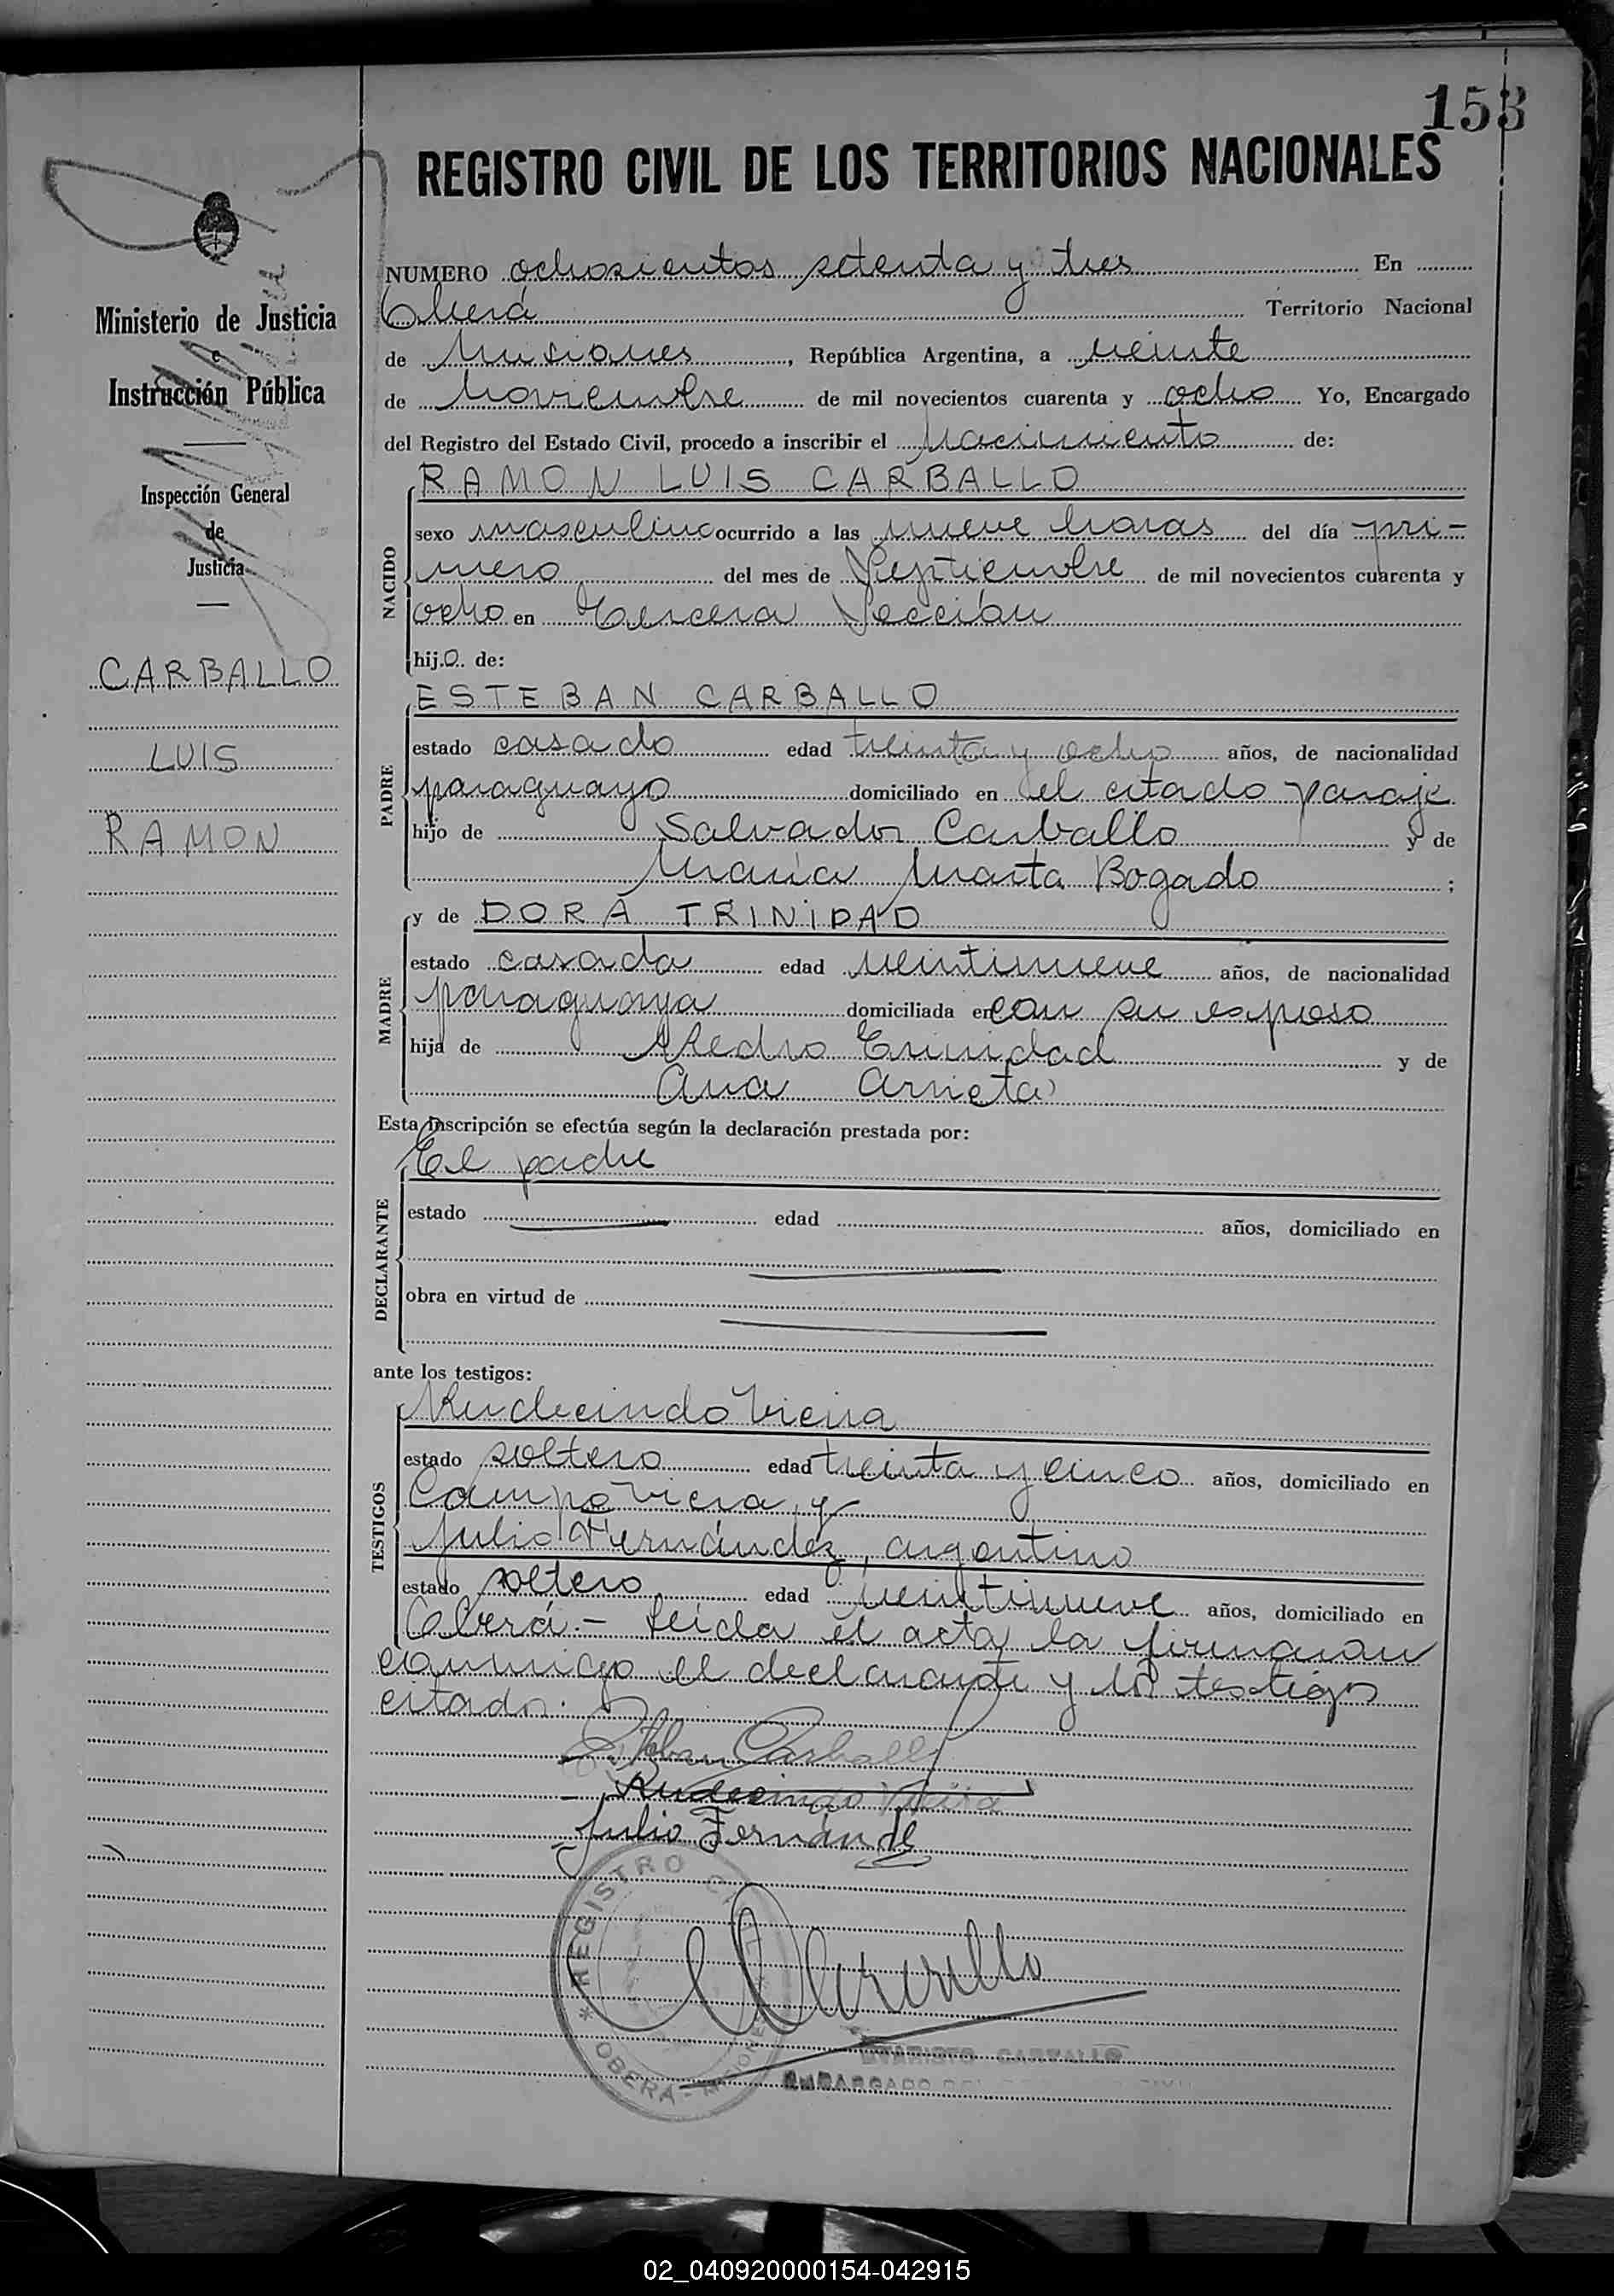 153
REGISTRO CIVIL DE LOS TERRITORIOS NACIONALES
Ministerio de Justicia
e
Instrucción Pública
Inspección General
de
Justicia
CARBALLO
LUIS
RAMON
NUMERO ochosientos setenta y tres En
Oberá Territorio Nacional
de Misiones, República Argentina, a veinte
de Noviembre de mil novecientos cuarenta y ocho Yo, Encargado
del Registro del Estado Civil, procedo a inscribir el Nacimiento de:
NACIDO
RAMON LUIS CARBALLO
sexo masculino ocurrido a las nueve horas del día pri-
mero del mes de Septiembre de mil novecientos cuarenta y
ocho en Tercera Sección
hijo de:
PADRE
ESTEBAN CARBALLO
estado casado edad treinta y ocho años, de nacionalidad
paraguayo domiciliado en el citado paraje
hijo de Salvador Carballo y de
María Marta Bogado ;
MADRE
y de DORA TRINIDAD
estado casada edad veintinueve años, de nacionalidad
paraguaya domiciliada en con su esposo
hija de Pedro Trinidad y de
Ana Arrieta
Esta inscripción se efectúa según la declaración prestada por:
DECLARANTE
El padre
estado edad años, domiciliado en
obra en virtud de
ante los testigos:
TESTIGOS
Rudecindo Vieira
estado soltero edad treinta y cinco años, domiciliado en
Campo Viera y
Julio Fernández, argentino
estado soltero edad veintinueve años, domiciliado en
Oberá.- Leída el acta la firmaran
conmigo el declarante y los testigos
citados.
Esteban Carballo
Rudecindo Vieira
Julio Fernández
REGISTRO
OBERA - MISIONES
ENCARGADO DEL
02_040920000154-042915